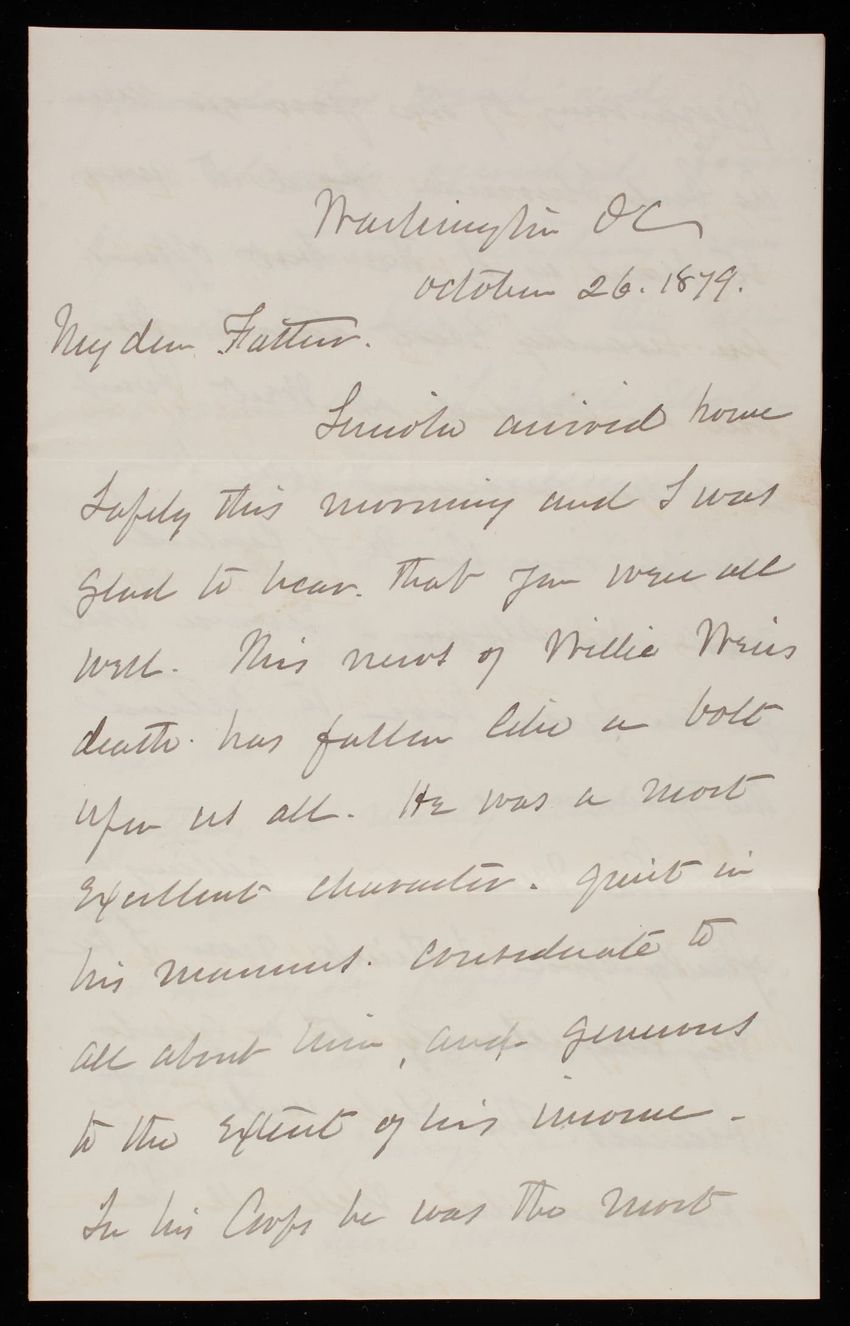 Washington DC
October 26. 1879.
My dear Father.
Lincoln arrived home
safely this morning and I was
glad to hear. that you were all
well. This news of Willie Weirs
death. has fallen like a bolt
upon us all. He was a most
Excellent character. quiet in
his manners. Considerate to
all about him, and generous
to the Extent of his income -
In his Corps he was the most